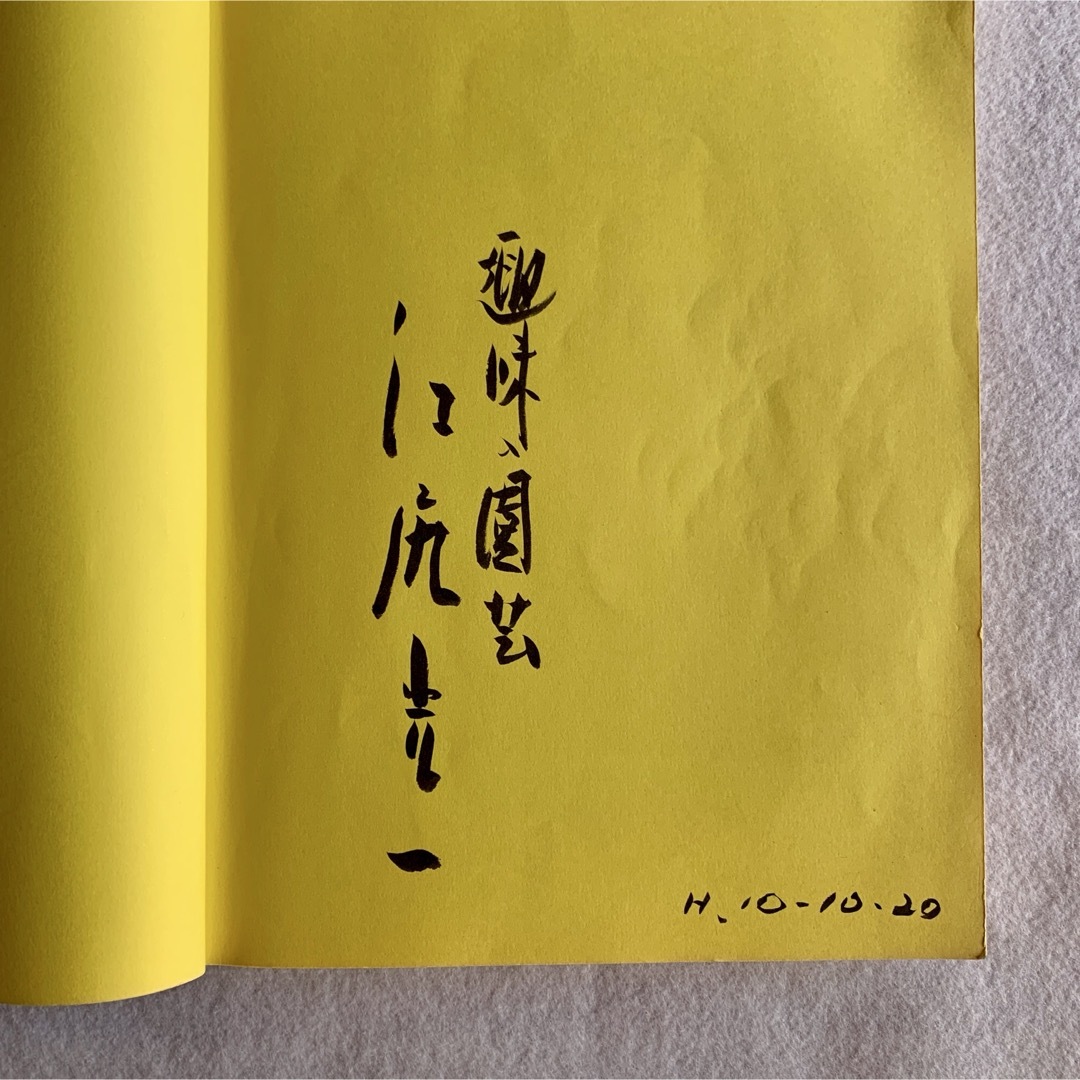 趣味の園芸
江尻光一
H.10-10.20